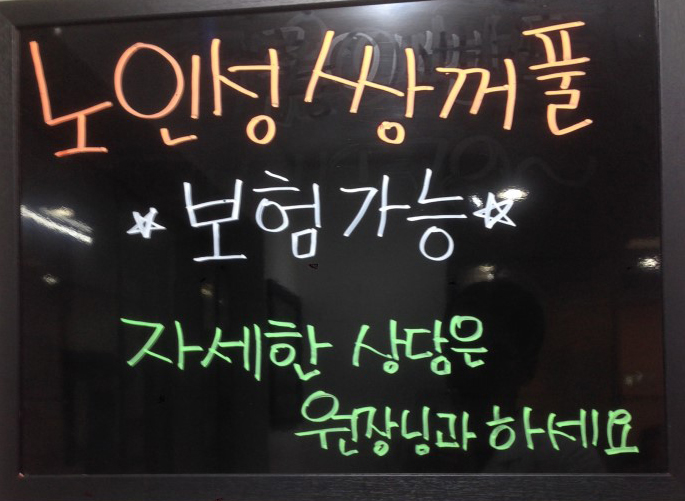 노인성 쌍꺼풀
☆ 보험가능 ☆
자세한 상담은
원장님과 하세요